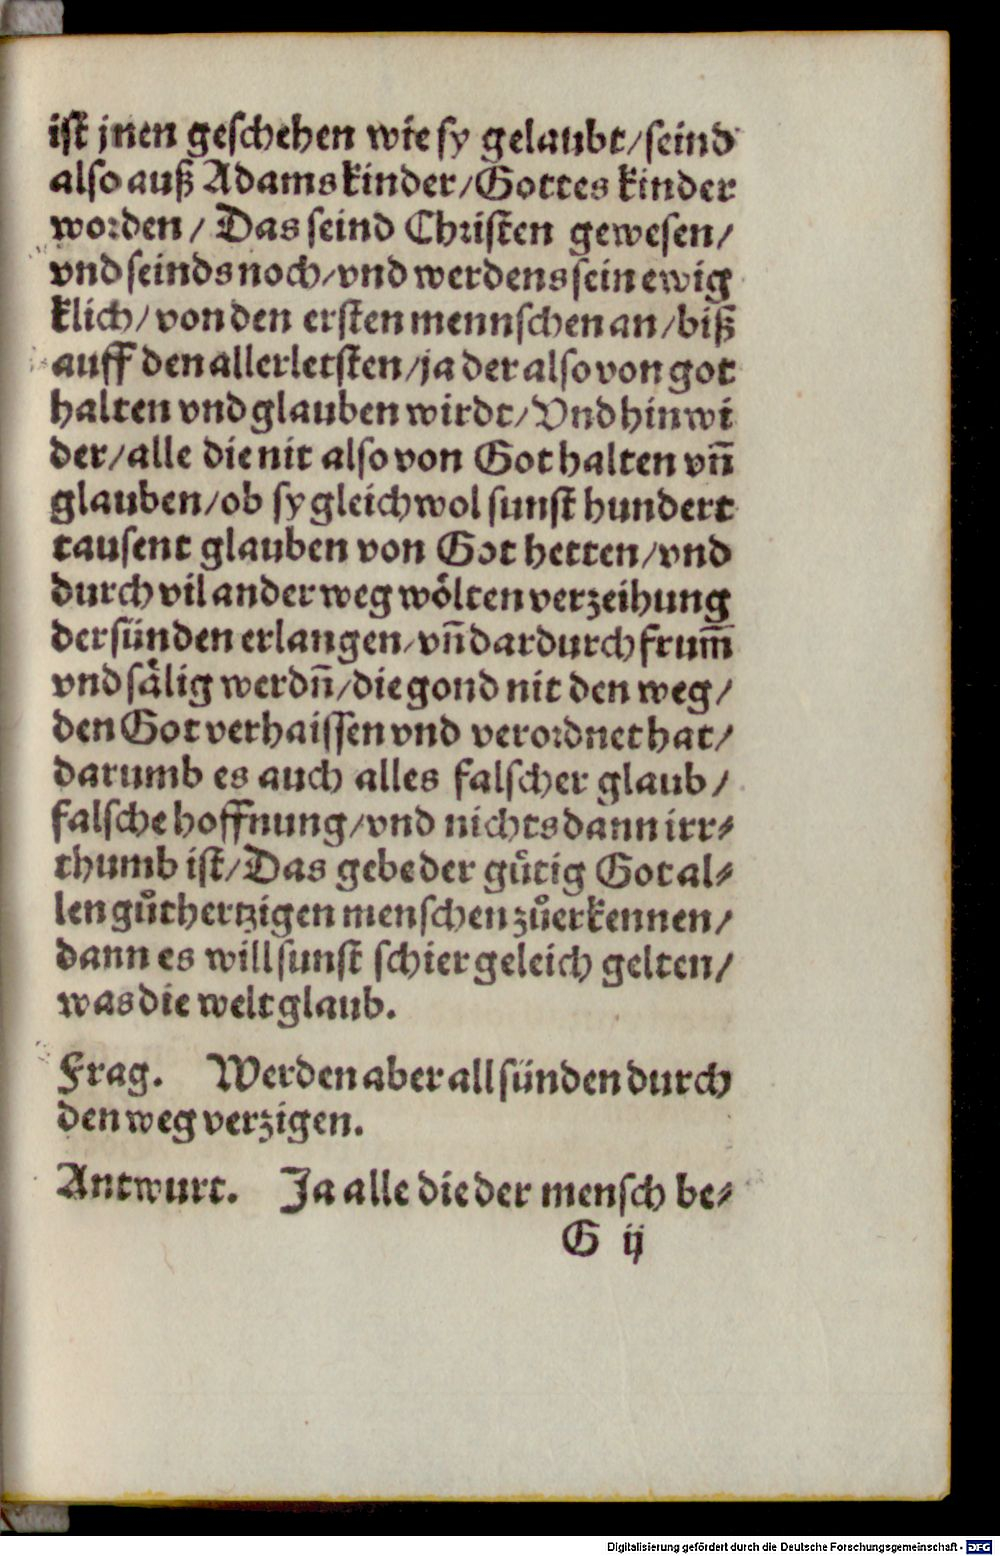 ist jnen geschehen wie sy gelaubt/seind
also auß Adams kinder/Gottes kinder
worden/ Das seind Christen gewesen/
vnd seinds noch/vnd werdens sein ewig
klich/von den ersten mennschen an/biß
auff den allerletsten/ja der also von got
halten vnd glauben wirdt/Vnd hinwi
der/alle die nit also von Got halten vñ
glauben/ob sy gleichwol sunst hundert
tausent glauben von Got hetten/vnd
durch vil ander weg wölten verzeihung
der sünden erlangen/vñ dardurch frum̄
vnd sälig werdn̄/die gond nit den weg/
den Got verhaissen vnd verordnet hat/
darumb es auch alles falscher glaub/
falsche hoffnung/vnd nichts dann irr⸗
thumb ist/Das gebe der gütig Got al⸗
len gůthertzigen menschen zůerkennen/
dann es will sunst schier geleich gelten/
was die welt glaub.
Frag. Werden aber all sünden durch
den weg verzigen.
Antwurt. Ja alle die der mensch be⸗
G ij
Digitalisierung gefördert durch die Deutsche Forschungsgemeinschaft - DFG